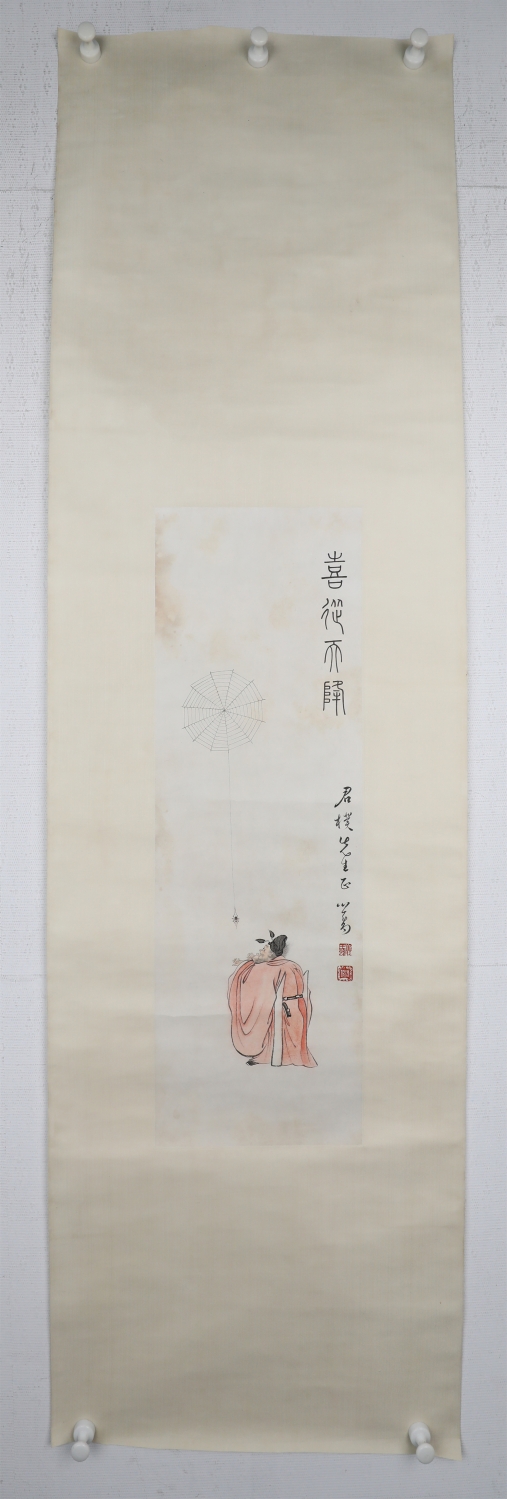 喜從天降
君樸先生正 心畬